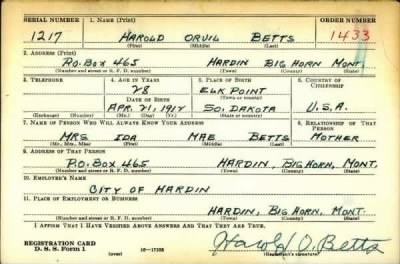 SERIAL NUMBER 1. NAME (Print) ORDER NUMBER
1217 HAROLD ORVIL BETTS 1433
(First) (Middle) (Last)
2. ADDRESS (Print)
P.O. BOX 465 HARDIN BIG HORN MONT.
(Number and street or R. F. D. number) (Town) (County) (State)
3. TELEPHONE 4. AGE IN YEARS 5. PLACE OF BIRTH 6. COUNTRY OF CITIZENSHIP
28 ELK POINT
(Town or county)
DATE OF BIRTH
APR. 21, 1917 SO. DAKOTA U.S.A.
(Exchange) (Number) (Mo.) (Day) (Yr.) (State or country)
7. NAME OF PERSON WHO WILL ALWAYS KNOW YOUR ADDRESS 8. RELATIONSHIP OF THAT PERSON
MRS IDA MAE BETTS MOTHER
(Mr., Mrs., Miss) (First) (Middle) (Last)
9. ADDRESS OF THAT PERSON
P.O. BOX 465 HARDIN, BIG HORN, MONT.
(Number and street or R. F. D. number) (Town) (County) (State)
10. EMPLOYER'S NAME
CITY OF HARDIN
11. PLACE OF EMPLOYMENT OR BUSINESS
HARDIN, BIG HORN, MONT.
(Number and street or R. F. D. number) (Town) (County) (State)
I AFFIRM THAT I HAVE VERIFIED ABOVE ANSWERS AND THAT THEY ARE TRUE.
REGISTRATION CARD
D. S. S. Form 1 (over) Harold O. Betts
(Registrant's signature)